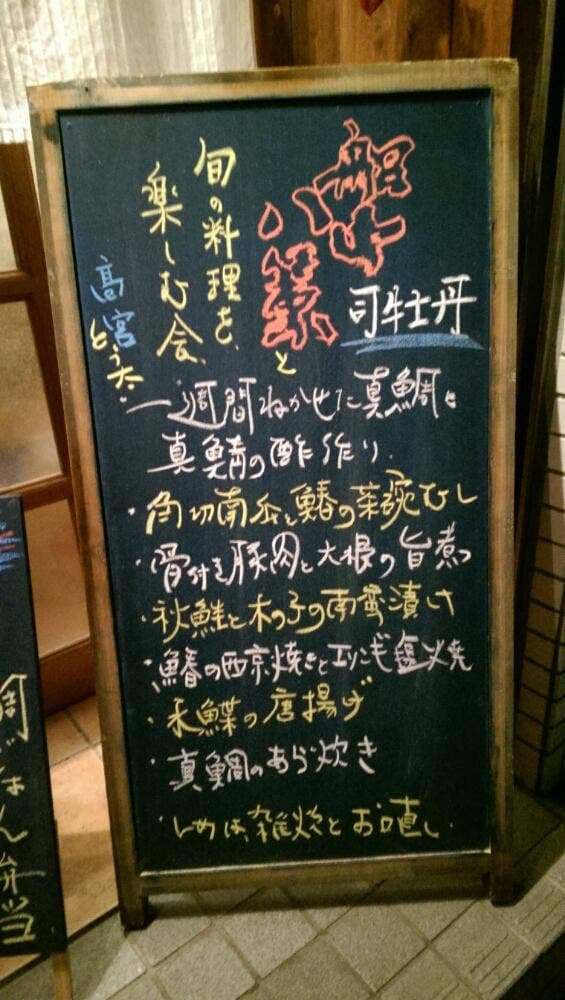 司牡丹
船中
八策
と
旬の料理を、
楽しむ会、
高宮
とう六
・一週間ねかせた真鯛と
真鯖の酢作り、
・角切南瓜と鰆の茶碗むし
・骨付き豚肉と大根の旨煮
・秋鮭と木の子の南蛮漬け
・鰆の西京焼きとエリンギ塩焼
・水鰈の唐揚げ
・真鯛のあら炊き
・しめは、雑炊とお口直し、
鯛ごはん弁当